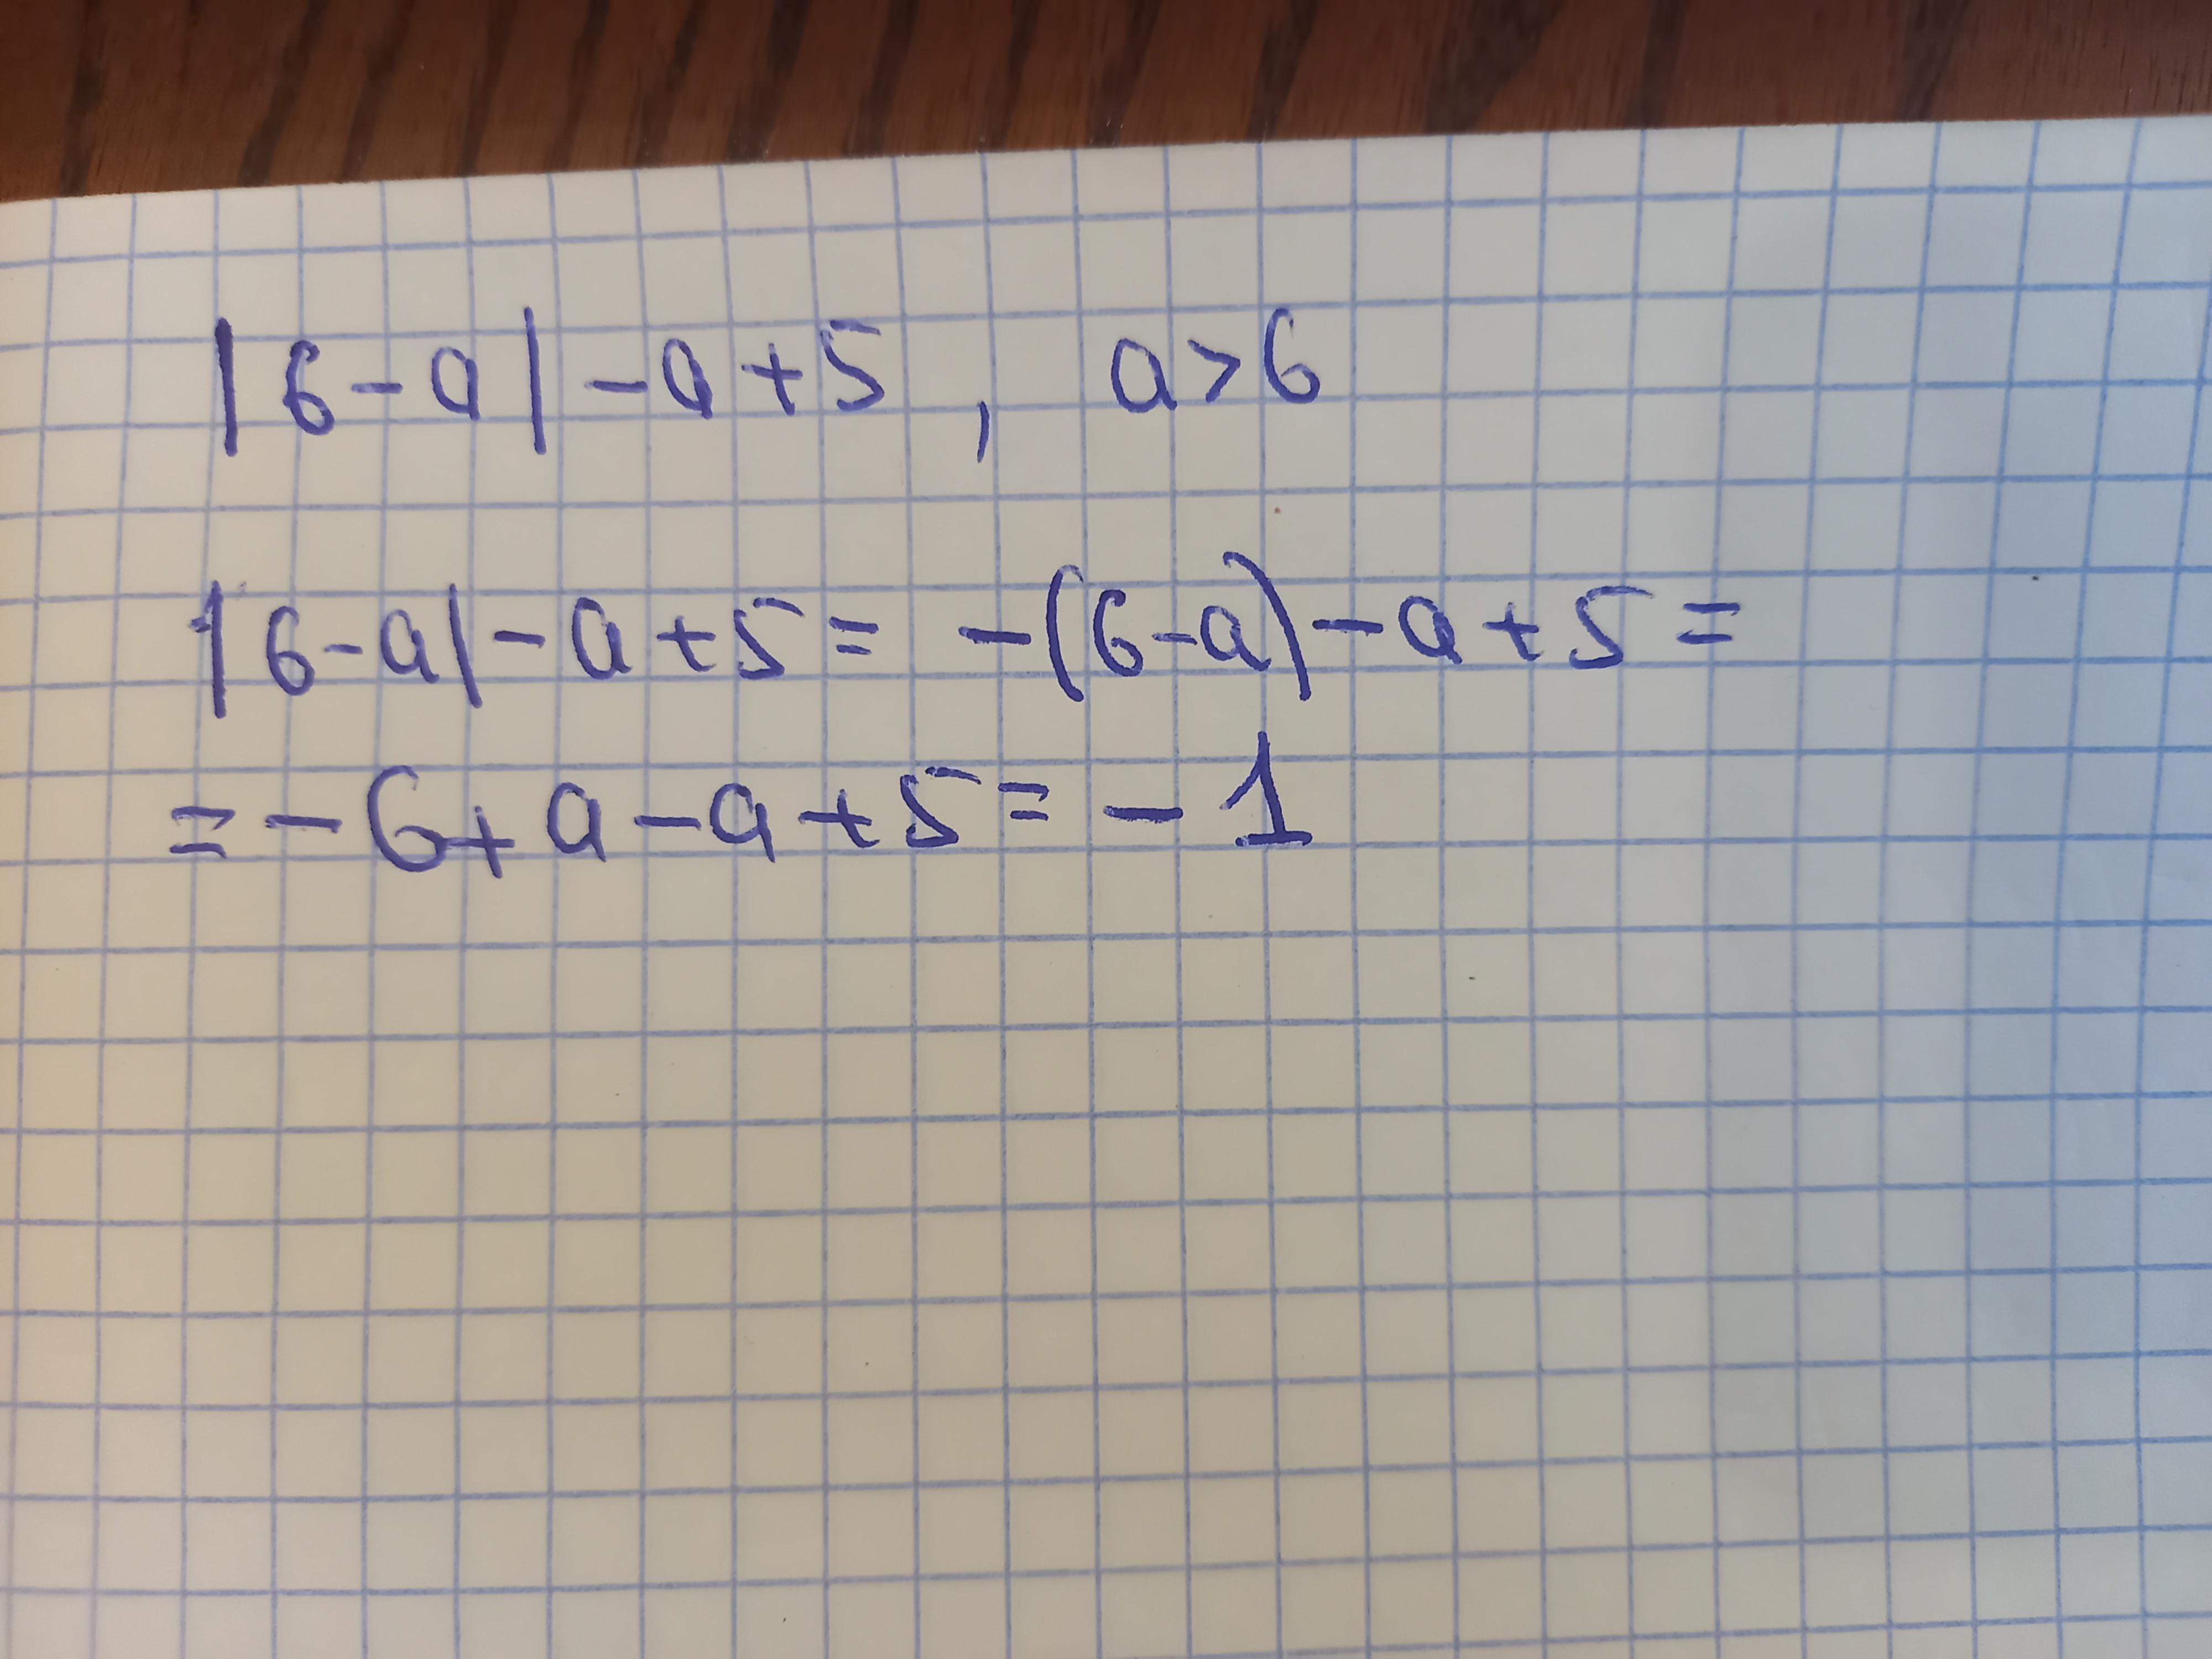 |6-a|-a+5, a>6
|6-a|-a+5= -(6-a)-a+5=
=-6+a-a+5=-1